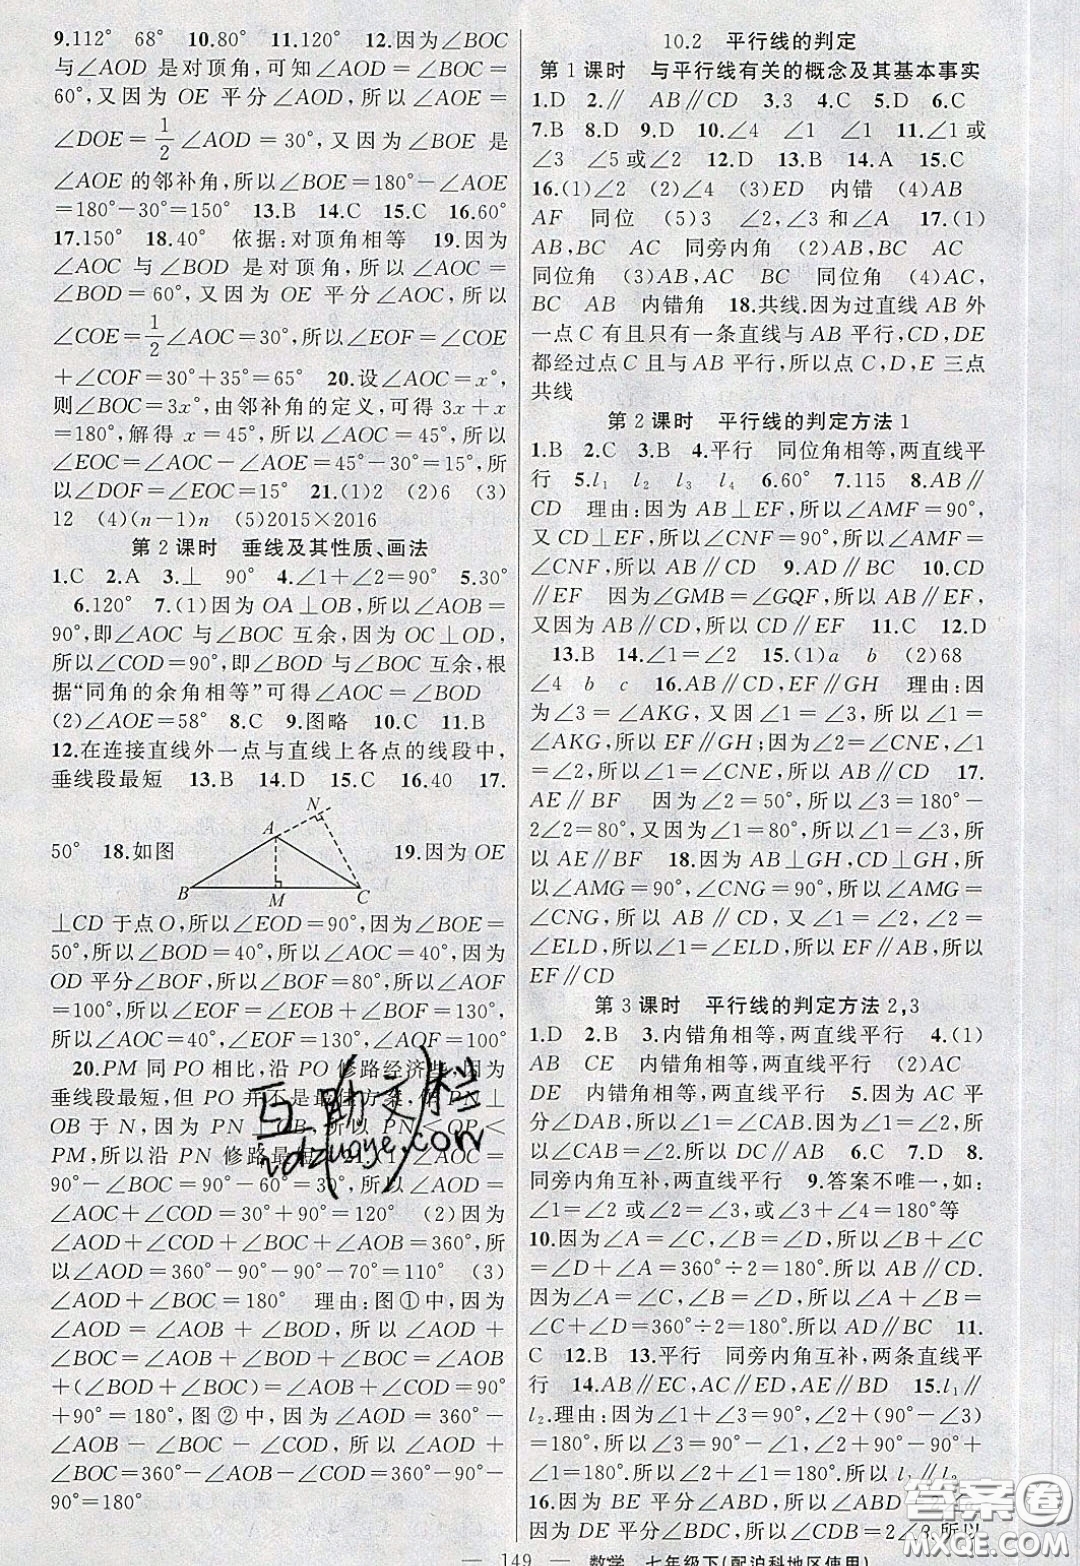 9.112° 68° 10.80° 11.120° 12.因为∠BOC
与∠AOD 是对顶角,可知∠AOD=∠BOC=
60°,又因为 OE 平分∠AOD,所以∠AOE=
∠DOE=1/2∠AOD=30°,又因为∠BOE 是
∠AOE的邻补角,所以∠BOE=180°-∠AOE
=180°-30°=150° 13.B 14.C 15.C 16.60°
17.150° 18.40° 依据:对顶角相等 19.因为
∠AOC 与∠BOD 是对顶角,所以∠AOC=
∠BOD=60°,又因为 OE 平分∠AOC,所以
∠COE=1/2∠AOC=30°,所以∠EOF=∠COE
+∠COF=30°+35°=65° 20.设∠AOC=x°,
则∠BOC=3x°,由邻补角的定义,可得 3x+x
=180°,解得 x=45°,所以∠AOC=45°,所以
∠EOC=∠AOC-∠AOE=45°-30°=15°,所
以∠DOF=∠EOC=15° 21.(1)2 (2)6 (3)
12 (4)(n-1)n (5)2015×2016
第 2 课时 垂线及其性质、画法
1.C 2.A 3.⊥ 90° 4.∠1+∠2=90° 5.30°
6.120° 7.(1)因为OA⊥OB,所以∠AOB=
90°,即∠AOC 与∠BOC 互余,因为 OC⊥OD,
所以∠COD=90°,即∠BOD与∠BOC互余,根
据“同角的余角相等”可得∠AOC=∠BOD
(2)∠AOE=58° 8.C 9.图略 10.C 11.B
12.在连接直线外一点与直线上各点的线段中,
垂线段最短 13.B 14.D 15.C 16.40 17.
50° 18.如图 19.因为OE
N
A
B M C
⊥CD于点O,所以∠EOD=90°,因为∠BOE=
50°,所以∠BOD=40°,所以∠AOC=40°,因为
OD平分∠BOF,所以∠BOF=80°,所以∠AOF
=100°,所以∠EOF=∠EOB+∠BOF=130°,
所以∠AOC=40°,∠EOF=130°,∠AOF=100°
20.PM 同 PO 相比,沿 PO 修路经济些,因为
垂线段最短,但 PO 并不是最佳方案,作PN⊥
OB于 N,因为 PN⊥OB,所以 PN<OP<
PM,所以沿 PN 修路最短 21.(1)∠AOC=
90°-∠BOC=90°-60°=30°,所以∠AOD=
∠AOC+∠COD=30°+90°=120° (2)因为
∠AOD+∠COD+∠BOC+∠AOB=360°,所
以∠AOD=360°-90°-90°-70°=110° (3)
∠AOD+∠BOC=180° 理由:图①中,因为
∠AOD=∠AOB+∠BOD,所以∠AOD+
∠BOC=∠AOB+∠BOD+∠BOC=∠AOB
+(∠BOD+∠BOC)=∠AOB+∠COD=90°
+90°=180°,图②中,因为∠AOD=360°-
∠AOB-∠BOC-∠COD,所以∠AOD+
∠BOC=360°-∠AOB-∠COD=360°-90°-
90°=180°
10.2 平行线的判定
第 1 课时 与平行线有关的概念及其基本事实
1.D 2.∥ AB∥CD 3.3 4.C 5.D 6.C
7.B 8.D 9.D 10.∠4 ∠1 ∠1 11.∠1或
∠3 ∠5或∠2 12.D 13.B 14.A 15.C
16.(1)∠2 (2)∠4 (3)ED 内错 (4)AB
AF 同位 (5)3 ∠2,∠3和∠A 17.(1)
AB,BC AC 同旁内角 (2)AB,BC AC
同位角 (3)AB,AC BC 同位角 (4)AC,
BC AB 内错角 18.共线.因为过直线AB外
一点 C 有且只有一条直线与 AB 平行,CD,DE
都经过点 C 且与 AB 平行,所以点 C,D,E 三点
共线
第 2 课时 平行线的判定方法 1
1.B 2.C 3.B 4.平行 同位角相等,两直线平
行 5.l₁ l₂ l₃ l₄ 6.60° 7.115 8.AB∥
CD 理由:因为AB⊥EF,所以∠AMF=90°,
又CD⊥EF,所以∠CNF=90°,所以∠AMF=
∠CNF,所以AB∥CD 9.AD∥BC 10.CD
∥EF 因为∠GMB=∠GQF,所以AB∥EF,
又因为AB∥CD,所以CD∥EF 11.C 12.D
13.B 14.∠1=∠2 15.(1)a b (2)68
∠4 b c 16.AB∥CD,EF∥GH 理由:因
为∠3=∠AKG,又因∠1=∠3,所以∠1=
∠AKG,所以EF∥GH;因为∠2=∠CNE,又因
为∠1=∠2,∠1=∠CNE,所以AB∥CD 17.
AE∥BF 因为∠2=50°,所以∠3=180°-
2∠2=80°,又因为∠1=80°,所以∠1=∠3,所
以AE∥BF 18.因为 AB⊥GH,CD⊥GH,所
以∠AMG=90°,∠CNG=90°,所以∠AMG=
∠CNG,所以 AB∥CD,又∠1=∠2,∠2=
∠ELD,所以∠1=∠ELD,所以EF∥AB,所以
EF∥CD
第 3 课时 平行线的判定方法 2,3
1.D 2.B 3.内错角相等,两直线平行 4.(1)
AB CE 内错角相等,两直线平行 (2)AC
DE 内错角相等,两直线平行 5.因为 AC 平
分∠DAB,所以∠1=∠CAB,又因为∠1=∠2,
所以∠CAB=∠2,所以DC∥AB 6.C 7.D 8.
同旁内角互补,两直线平行 9.答案不唯一,如:
∠1=∠2或∠2=∠3,或∠3+∠4=180°等
10.因为∠A=∠C,∠B=∠D,所以∠B+∠C
=∠D+∠A=360°÷2=180°.所以AB∥CD.
因为∠A=∠C,∠B=∠D,所以∠A+∠B=
∠C+∠D=360°÷2=180°.所以AD∥BC 11.
C 12.B 13.平行 同旁内角互补,两条直线平
行 14.AB∥EC,AC∥ED,AE∥BD 15.l₁∥
l₂.理由:因为∠1+∠3=90°,∠2+(90°-∠3)
=180°,所以∠3=90°-∠1,∠2+90°-90°+
∠1=180°,所以∠2+∠1=180°,所以 l₁∥l₂
16.因为 BE 平分∠ABD,所以∠ABD=2∠
因为DE平分∠BDC,所以∠BDC=2∠3.所以
— 149 — 数学 七年级下(配沪科地区使用)
互助文档
hdzuoye.com
答案圈